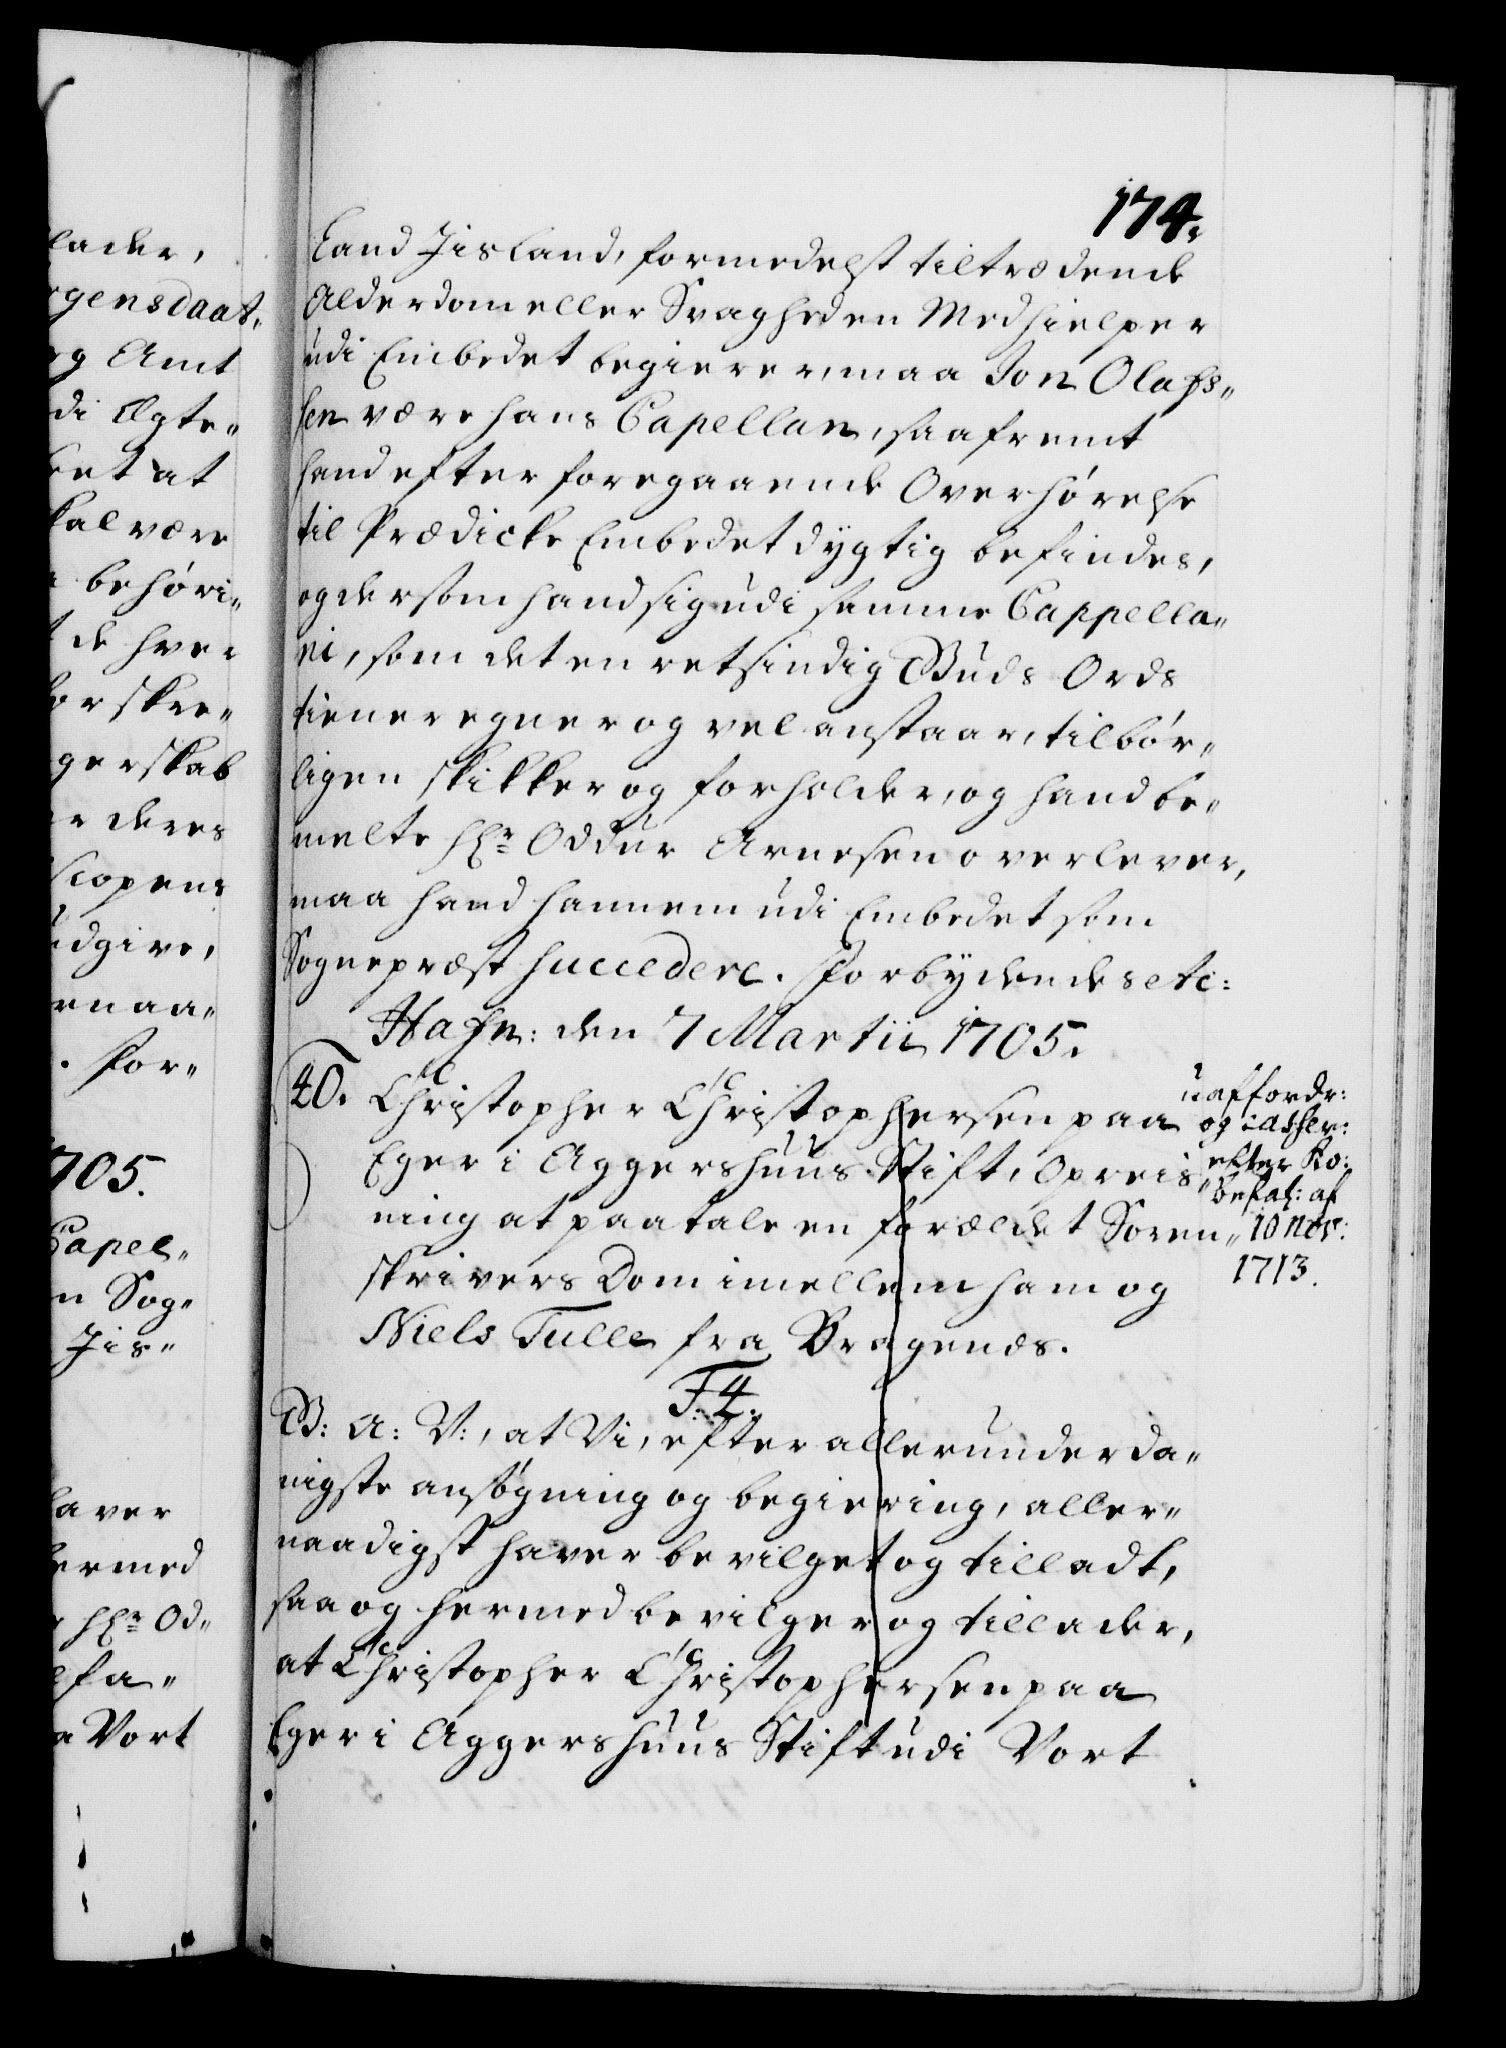 174.
Land Jisland, formedelst tiltrædende
Alderdom eller Svagheden Medhielper
udi Embedet begierer, maa Jon Olafs„
sen være hans Capellan, saafremt
hand efter foregaaende Overhørelse
til Prædicke Embedet dygtig befindes,
og dersom hand sig udi samme Cappella„
ni, som det en retsindig Guds Ords
tiener egner og vel anstaar, tilbør„
ligen skikker og forholder, og hand be„
melte Hr. Oddur Arnesen overlever,
maa hand hannem udi Embedet som
Sognepræst succedere. Forbydendes etc:
Hafn: den 7 Martii 1705.
40. Christopher Christophersen paa
Eger i Aggershuus Stift, Opreis„
ning at paatale en forældet Soren„
skrivers Dom imellem ham og
Niels Tulle fra Bragenæs.
F. 4.
G: A: V:, at Vi, efter allerunderda„
nigste ansøgning og begiering, aller„
naadigst haver bevilget og tilladt,
saa og hermed bevilger og tillader,
at Christopher Christophersen paa
Eger i Aggershuus Stift udi Vort
uaffordr:
og casser:
efter Ko:
Befal: af
10 Nov:
1713.
lader,
rgensdaat„
rg Amt
di Ægte„
ket at
kal være
behøri„
de hver
or skre„
gerskab
er deres
scopens
udgive,
enaa„
. For„
705.
Capel„
n Sog„
Jis„
laver
ermed
Hr. Od„
lfa„
a Vort